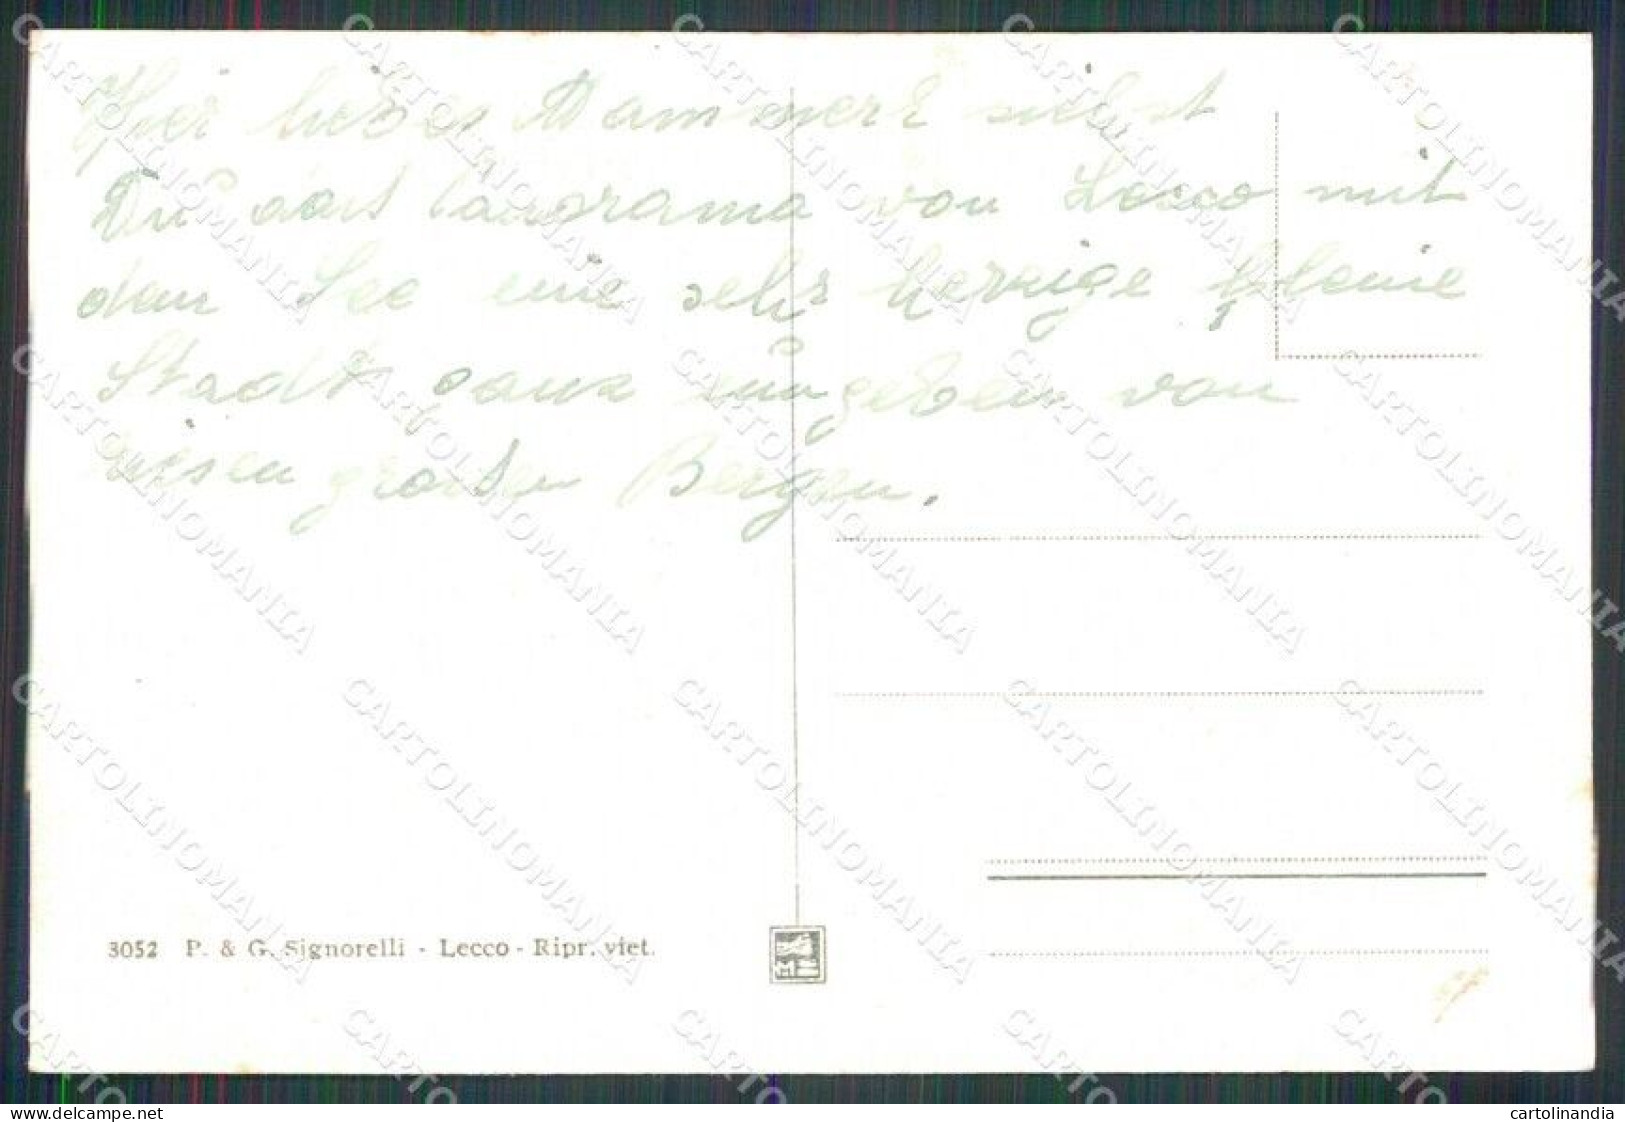 Hier liebes Dammerl siehst
Du das Panorama von Lecco mit
den See eine sehr herzige kleine
Stadt ganz umgeben von
riesen großen Bergen.
3052 P. & G. Signorelli - Lecco - Ripr. viet.
CARTOLINOMANIA
delcampe.net
cartolinandia